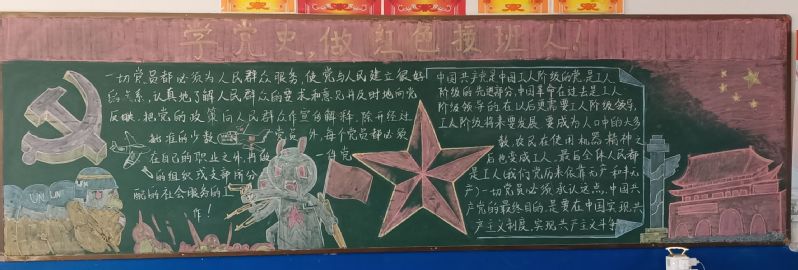 学党史，做红色接班人！
一切党员都必须为人民群众服务，使党与人民建立很好
的关系，认真地了解人民群众的要求和意见并及时地向党
反映，把党的政策向人民群众作宣传解释，除开经过
批准的少数 党员外，每个党员都必须
在自己的职业之外，再做 一件党
的组织或支部所分
配的社会服务的工
作！
中国共产党是中国工人阶级的党，是工人
阶级的先进部分，中国革命在过去是工人
阶级领导的在以后更需要工人阶级领导，
工人阶级将来要发展，要成为人口中的大多
数，农民在使用机器精种之
后也变成工人，最后全体人民都
是工人(我们党历来依靠无产和半无
产)一切党员必须承认这点，中国共
产党的最终目的，是要在中国实现共
产主义制度，实现共产主义斗争
UN UN